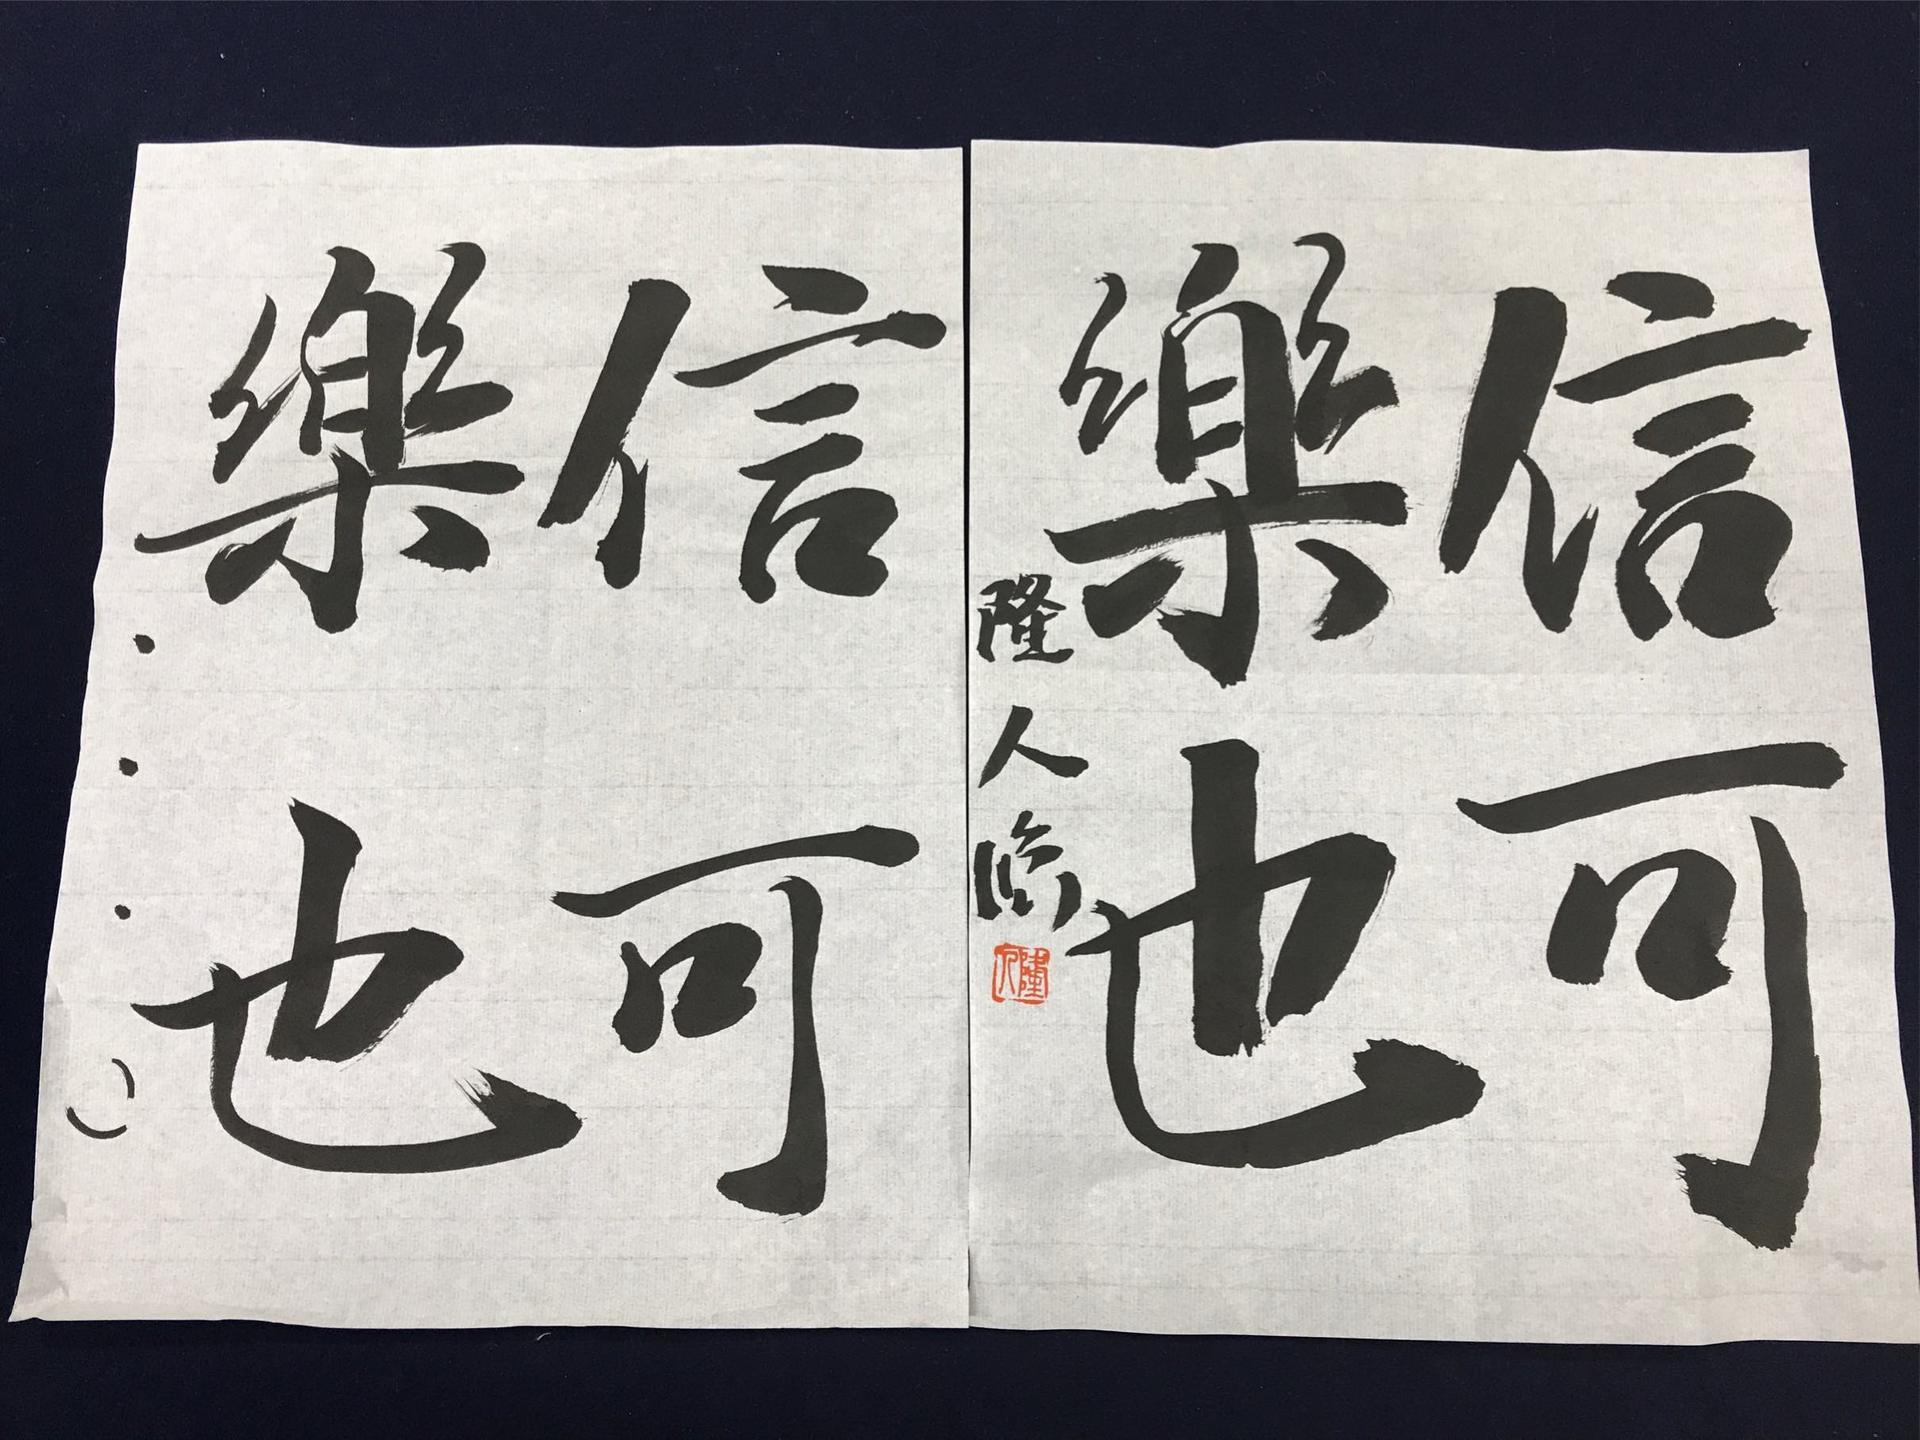 信可
樂也
隆人臨
隆人
信可
樂也